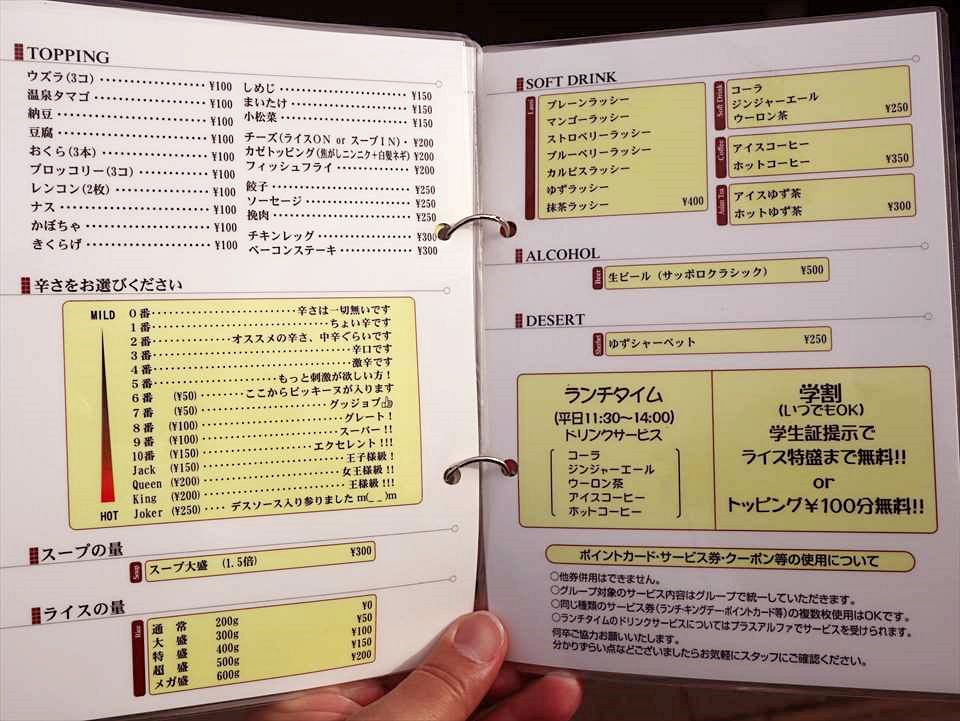 TOPPING
ウズラ(3コ) ¥100
温泉タマゴ ¥100
納豆 ¥100
豆腐 ¥100
おくら(3本) ¥100
ブロッコリー(3コ) ¥100
レンコン(2枚) ¥100
ナス ¥100
かぼちゃ ¥100
きくらげ ¥100
しめじ ¥150
まいたけ ¥150
小松菜 ¥150
チーズ(ライスON or スープIN) ¥200
カゼトッピング(焦がしニンニク+白髪ネギ) ¥200
フィッシュフライ ¥200
餃子 ¥250
ソーセージ ¥250
挽肉 ¥250
チキンレッグ ¥300
ベーコンステーキ ¥300
辛さをお選びください
MILD
HOT
0番 辛さは一切無いです
1番 ちょい辛です
2番 オススメの辛さ、中辛ぐらいです
3番 辛口です
4番 激辛です
5番 もっと刺激が欲しい方！
6番 (¥50) ここからピッキーヌが入ります
7番 (¥50) グッジョブ
8番 (¥100) グレート！
9番 (¥100) スーパー!!
10番 (¥150) エクセレント!!!
Jack (¥150) 王子様級！
Queen (¥200) 女王様級!!
King (¥200) 王様級!!!
Joker (¥250) デスソース入り参りました m(_ _)m
スープの量
Soup
スープ大盛 (1.5倍) ¥300
ライスの量
Rice
通常 200g ¥0
大盛 300g ¥50
特盛 400g ¥100
超盛 500g ¥150
メガ盛 600g ¥200
SOFT DRINK
Lassi
プレーンラッシー
マンゴーラッシー
ストロベリーラッシー
ブルーベリーラッシー
カルピスラッシー
ゆずラッシー
抹茶ラッシー ¥400
Soft Drink
コーラ
ジンジャーエール
ウーロン茶 ¥250
Coffee
アイスコーヒー
ホットコーヒー ¥350
Asian Tea
アイスゆず茶
ホットゆず茶 ¥300
ALCOHOL
Beer
生ビール (サッポロクラシック) ¥500
DESERT
Sherbet
ゆずシャーベット ¥250
ランチタイム
(平日11:30〜14:00)
ドリンクサービス
コーラ
ジンジャーエール
ウーロン茶
アイスコーヒー
ホットコーヒー
学割
(いつでもOK)
学生証提示で
ライス特盛まで無料!!
or
トッピング¥100分無料!!
ポイントカード・サービス券・クーポン等の使用について
○他券併用はできません。
○グループ対象のサービス内容はグループで統一していただきます。
○同じ種類のサービス券(ランチキングデー・ポイントカード等)の複数枚使用はOKです。
○ランチタイムのドリンクサービスについてはプラスアルファでサービスを受けられます。
何卒ご協力お願いいたします。
分かりずらい点などございましたらお気軽にスタッフにご確認ください。